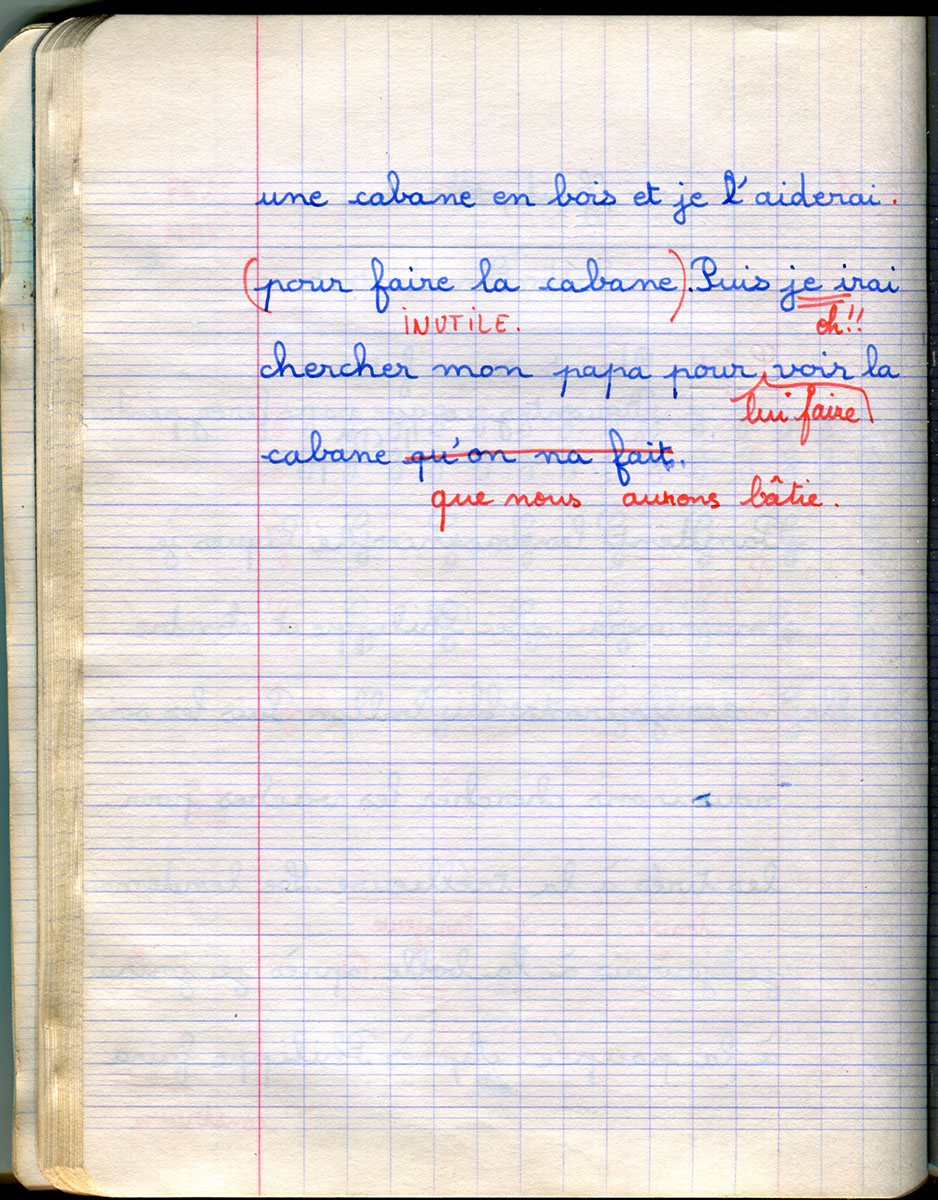 une cabane en bois et je l'aiderai.
(pour faire la cabane). Puis je irai
INUTILE. eh!!
chercher mon papa pour voir la
lui faire
cabane qu'on na fait.
que nous aurons bâtie.